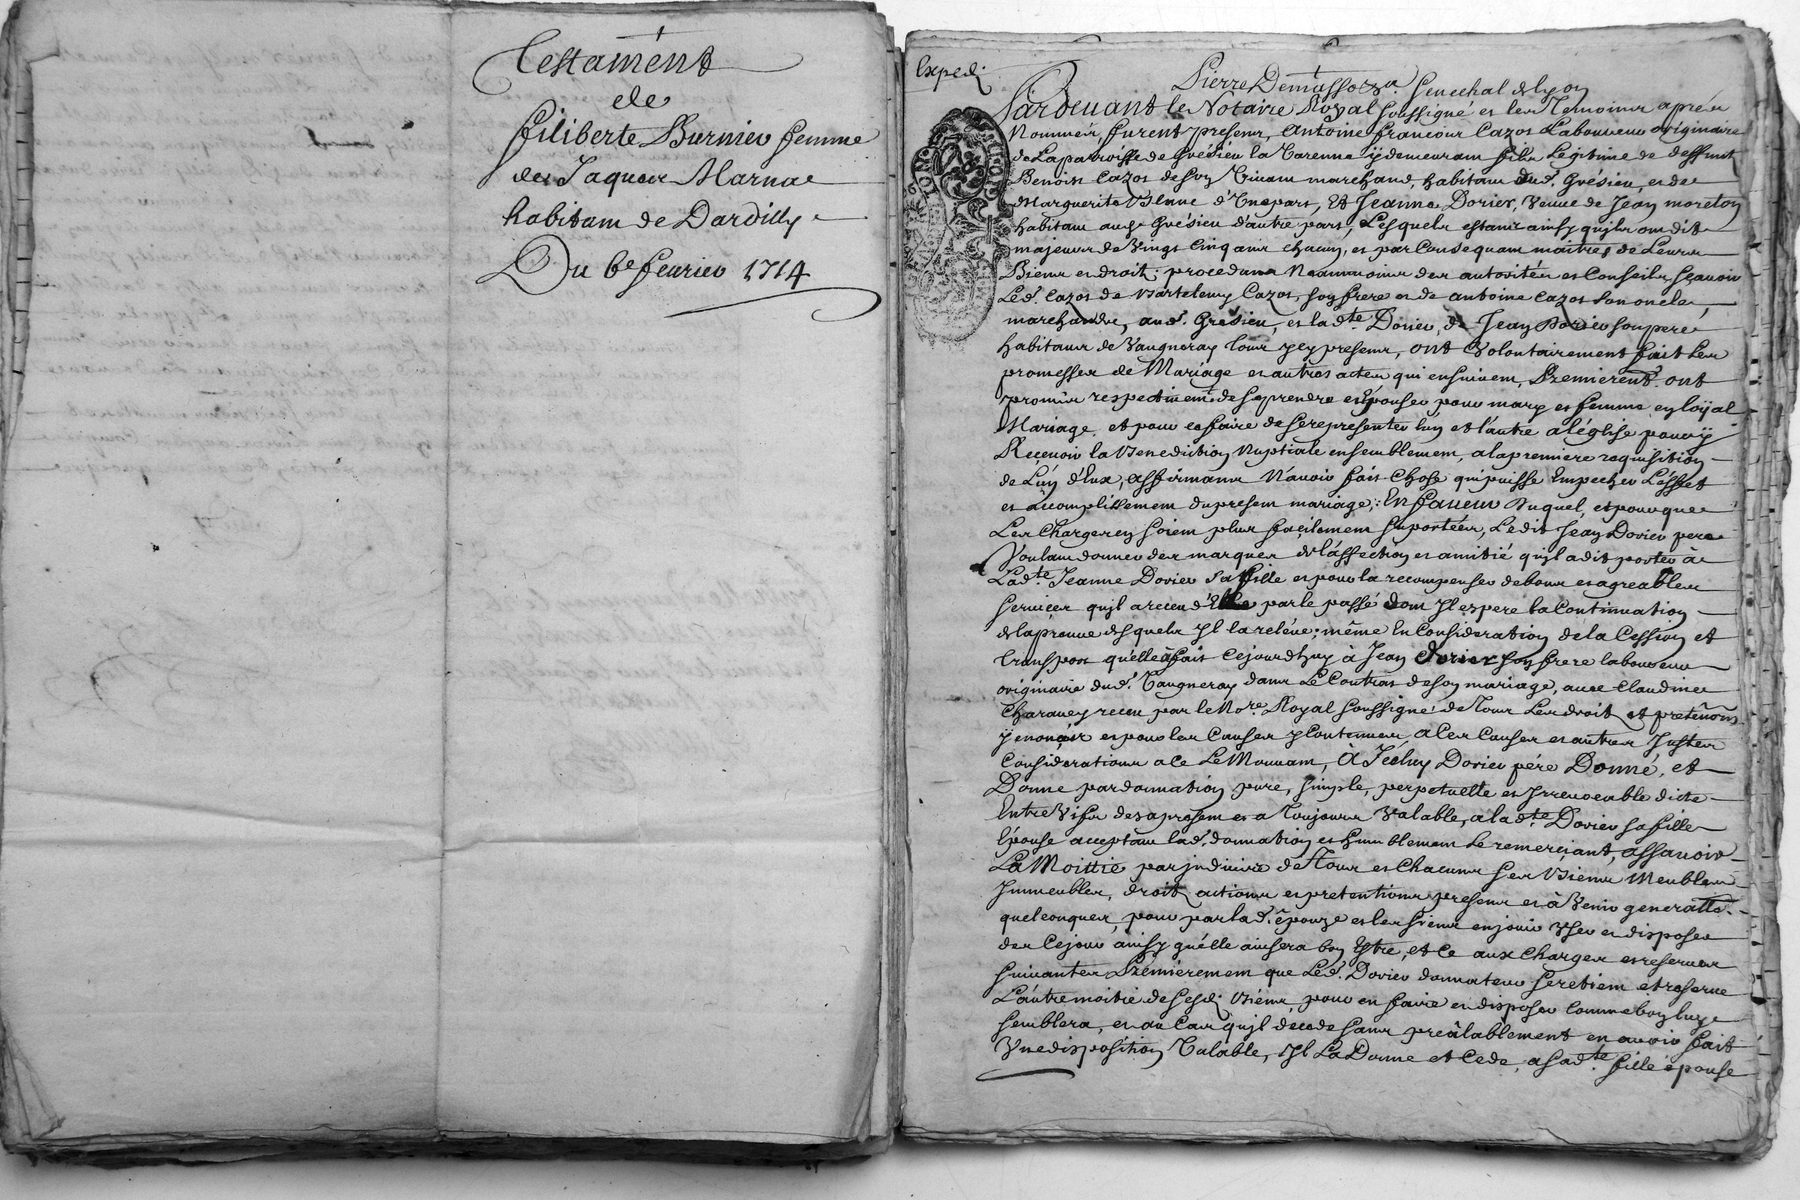 Testament
de
filiberte Burnieu femme
de Jaques Marnac
habitam de Dardilly
Du 6e feurieu 1714
Exped.
Pierre Demusso Senechal de lyon
Pardeuant le Notaire Royal soussigné et les Temoins aprés
Nommes furent presens, Antoine francois Cazos Laboureur originaire
de Laparoisse de Grésieu la Varenne y demeurant fils Legitime de deffunt
Benoist Cazos de son Viuant marchand, habitant dud. Grésieu, et de
Marguerite d'Unepart, Et Jeanne Dorier, Veuue de Jean moreton
habitant aud. Grésieu d'autre part, Lesquels estant ainsy quils ont dit
majeurs de Vingt Cinq ans chacun, et par Consequant maitres de Leurs
Biens et droit; procedans Neanmoins des autorités et Conseils sçauoir
Led. Cazos de Bartelemy Cazos, son frere et de antoine Cazos son oncle
marchands, aud. Grésieu, et lad.te Dorieu, de Jean Dorieu son pere
habitans de Vaugneray tous ycy presens, ont Volontairement fait Les
promesses de Mariage et autres actes qui ensuiuent, Premierent. ont
promis respectiuemt. de se prendre et Epouser pour mary et femme en loyal
Mariage, et pour ce faire de se representer lun et l'autre a l'église pour y
Receuoir la Benediction Nuptiale ensemblement, a la premiere requisition
de L'un d'Eux, affirmans N'auoir fait Chose qui puisse Empecher L'effet
et accomplissement du present mariage; En faueur Duquel, et pour que
Les Charges en soient plus facilement suportées, Ledit Jean Dorieu pere
Voulant donner des marques de l'affection et amitié quil a dit porter à
Lad.te Jeanne Dorieu sa fille et pour la recompenser de bons et agreables
seruices quil a receu d'Elle par le passé dont Il espere la Continuation
de la preuue desquels Il la releue; même En Consideration de la Cession et
transport qu'elle a fait Cejourdhuy à Jean Dorier son frere laboureur
originaire dud. Vaugneray dans Le Contrat de son mariage, auec Claudine
Charauey receu par le No.re Royal soussigné de tous Les droit et pretentions
y enoncés et pour les Causes y Contenues a Ces Causes et autres Justes
Considerations a ce Le Mouuant, Dorieu pére Donné, et
Donne par donnation pure, simple, perpetuelle et Irreuocable dicte
Entre Vifs des a present et a Toujours Valable, a lad.te Dorieu sa fille
Epouse acceptant lad. donnation et humblement Le remerciant, assauoir
La Moittié par indiuise de Tous et Chacuns ses Biens Meubles
Immeubles, droit actions et pretentions presens et à Venir generalls.
quelconques, pour par lad. épouze et les siens en jouir Vser et disposer
des Cejour ainsy qu'elle auisera bon Estre, et Ce aux Charges et reserues
suiuantes Premierement que Led. Dorieu donnateur se retient et reserue
L'autre moitié de Sesd. Biens, pour en faire et disposer Comme bon luy
semblera, et au Cas quil decede sans préalablement en auoir fait
Vne disposition Valable, Il La Donne et Cede, a sad.te fille épouse